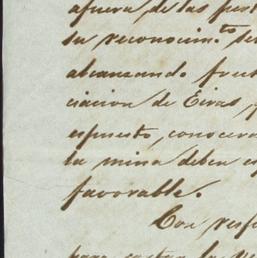 afuera de las
su reconocim.to se
alcanzando
ciacion de Eiras,
espuesto, conocera
la mina deben es
favorable.
Con
para